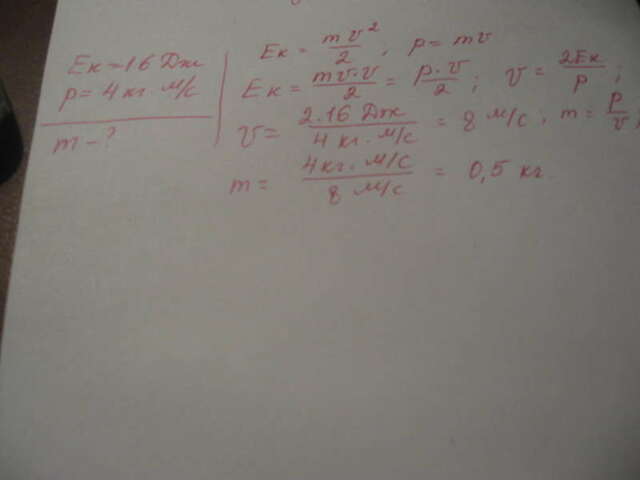 Eк = 16 Дж
p = 4 кг · м/с
m - ?
Eк = mv²/2 , p = mv
Eк = mv·v/2 = p·v/2 ; v = 2Eк/p ;
v = 2·16 Дж/4 кг · м/с = 8 м/с ; m = p/v ;
m = 4кг · м/с/8 м/с = 0,5 кг.